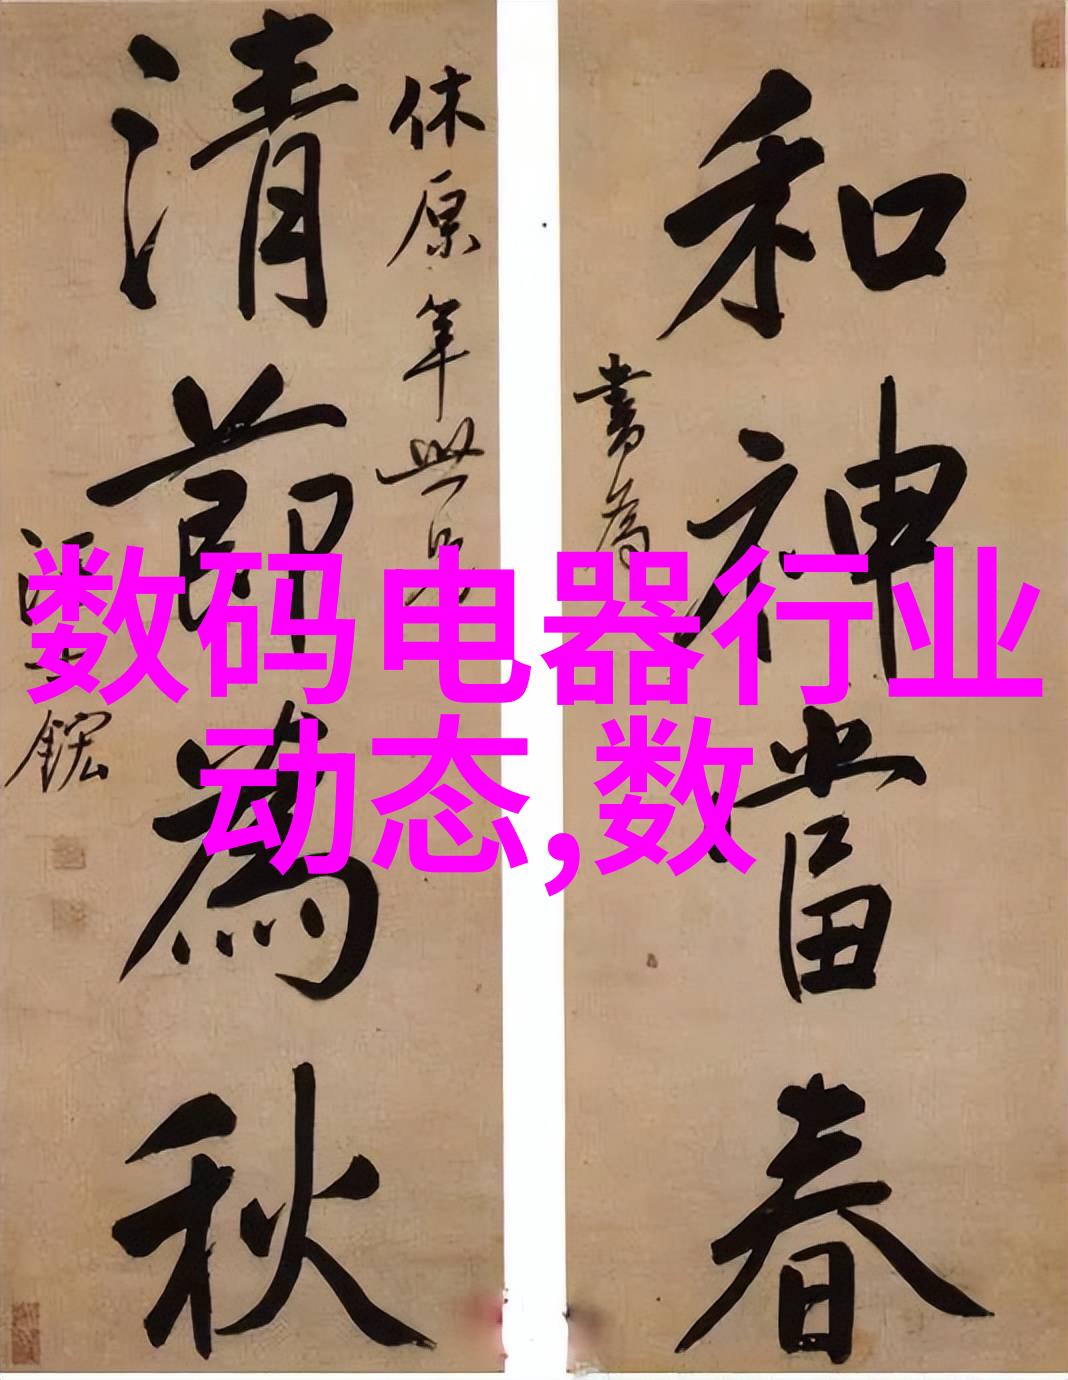 和神當春
書為
休原年世兄
清節為秋
汪士鋐
数码电器行业
动态,数